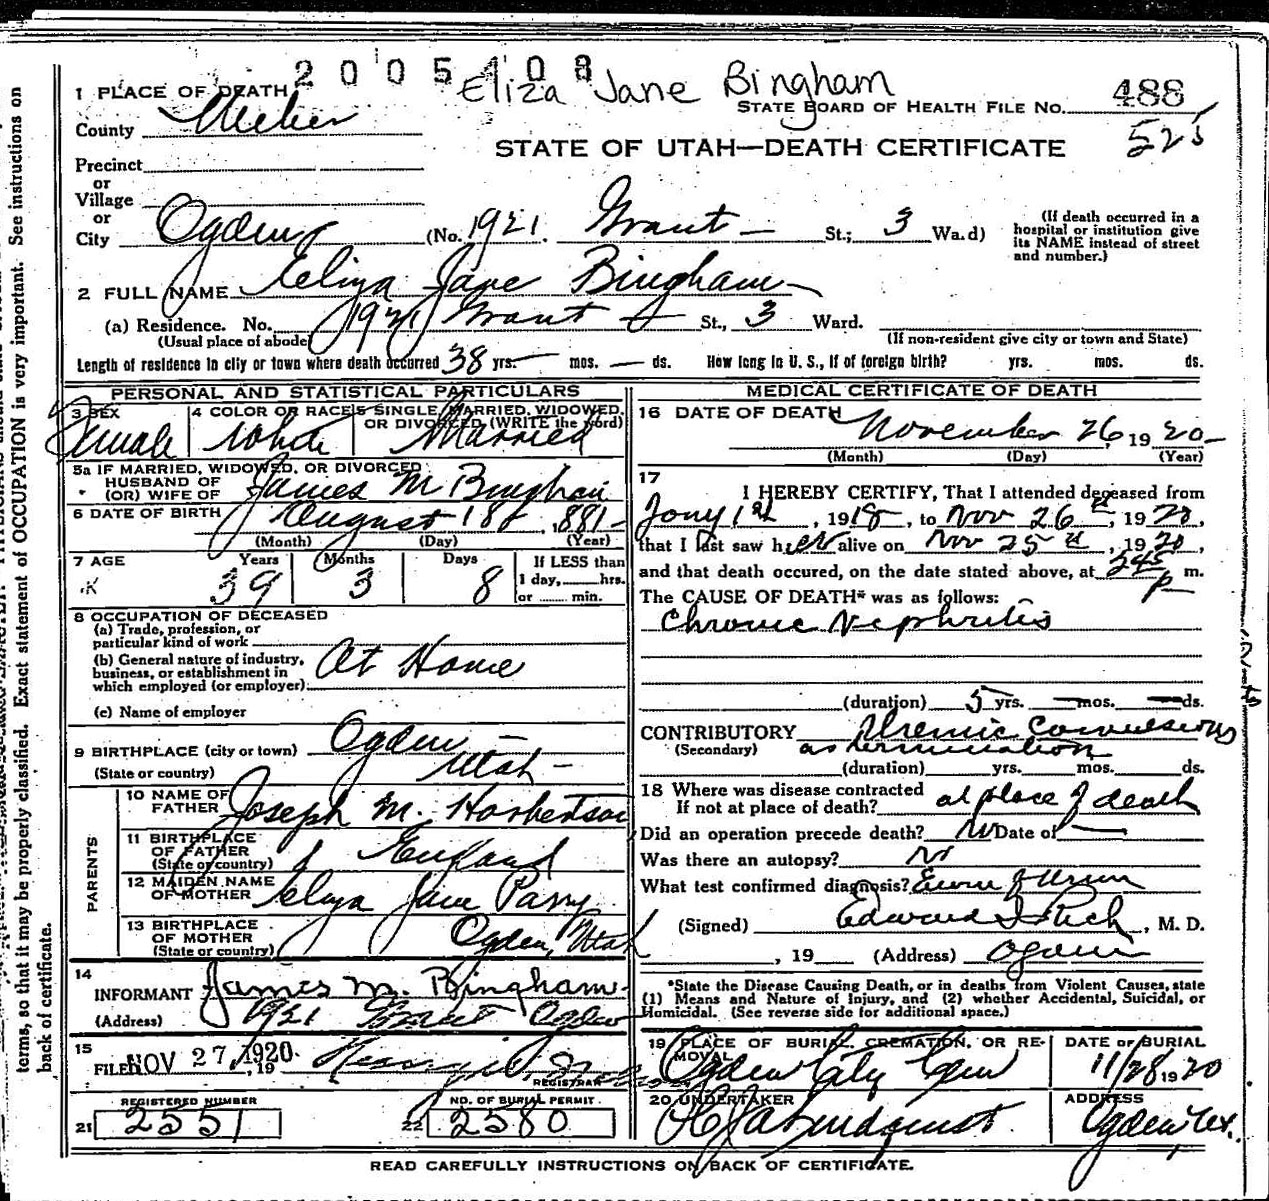 2005408
Eliza Jane Bingham
1 PLACE OF DEATH
STATE BOARD OF HEALTH FILE NO. 488
County Weber
525
STATE OF UTAH—DEATH CERTIFICATE
Precinct
or
Village
or
City Ogden (No. 1921 Grant — St.; 3 Ward)
(If death occurred in a hospital or institution give its NAME instead of street and number.)
2 FULL NAME Eliza Jane Bingham
(a) Residence. No. 1921 Grant St., 3 Ward.
(Usual place of abode) (If non-resident give city or town and State)
Length of residence in city or town where death occurred 38 yrs. — mos. — ds. How long in U. S., if of foreign birth? yrs. mos. ds.
PERSONAL AND STATISTICAL PARTICULARS
3 SEX Female
4 COLOR OR RACE White
5 SINGLE, MARRIED, WIDOWED, OR DIVORCED (WRITE the word) Married
5a IF MARRIED, WIDOWED, OR DIVORCED
HUSBAND OF
(OR) WIFE OF James M Bingham
6 DATE OF BIRTH August 18, 1881
(Month) (Day) (Year)
7 AGE Years 39 Months 3 Days 8
If LESS than
1 day, hrs.
or min.
8 OCCUPATION OF DECEASED
(a) Trade, profession, or
particular kind of work
(b) General nature of industry,
business, or establishment in
which employed (or employer) At Home
(c) Name of employer
9 BIRTHPLACE (city or town) Ogden —
(State or country) Utah —
PARENTS
10 NAME OF FATHER Joseph M. Harbertson
11 BIRTHPLACE OF FATHER (State or country) England
12 MAIDEN NAME OF MOTHER Eliza Jane Parry
13 BIRTHPLACE OF MOTHER (State or country) Ogden, Utah
14
INFORMANT James M. Bingham
(Address) 1921 Grant Ogden
15
FILED NOV 27 1920, 19
REGISTRAR
REGISTERED NUMBER
21 2551
NO. OF BURIAL PERMIT
22 2580
MEDICAL CERTIFICATE OF DEATH
16 DATE OF DEATH November 26, 1920
(Month) (Day) (Year)
17
I HEREBY CERTIFY, That I attended deceased from
Jany 1st, 1918, to Nov 26th, 1920,
that I last saw her alive on Nov 25th, 1920,
and that death occured, on the date stated above, at 245 p m.
The CAUSE OF DEATH* was as follows:
Chronic Nephritis
(duration) 5 yrs. — mos. — ds.
CONTRIBUTORY Uremic Convulsions
(Secondary) as termination
(duration) yrs. mos. ds.
18 Where was disease contracted
If not at place of death? at place of death
Did an operation precede death? No Date of —
Was there an autopsy? No
What test confirmed diagnosis? of Urine
(Signed) Edward I Rich, M. D.
, 19 (Address) Ogden
*State the Disease Causing Death, or in deaths from Violent Causes, state
(1) Means and Nature of Injury, and (2) whether Accidental, Suicidal, or
Homicidal. (See reverse side for additional space.)
19 PLACE OF BURIAL, CREMATION, OR REMOVAL Ogden City Cem
DATE OF BURIAL 11/28 1920
20 UNDERTAKER Lindquist
ADDRESS Ogden Ut.
READ CAREFULLY INSTRUCTIONS ON BACK OF CERTIFICATE.
terms, so that it may be properly classified. Exact statement of OCCUPATION is very important. See instructions on
back of certificate.